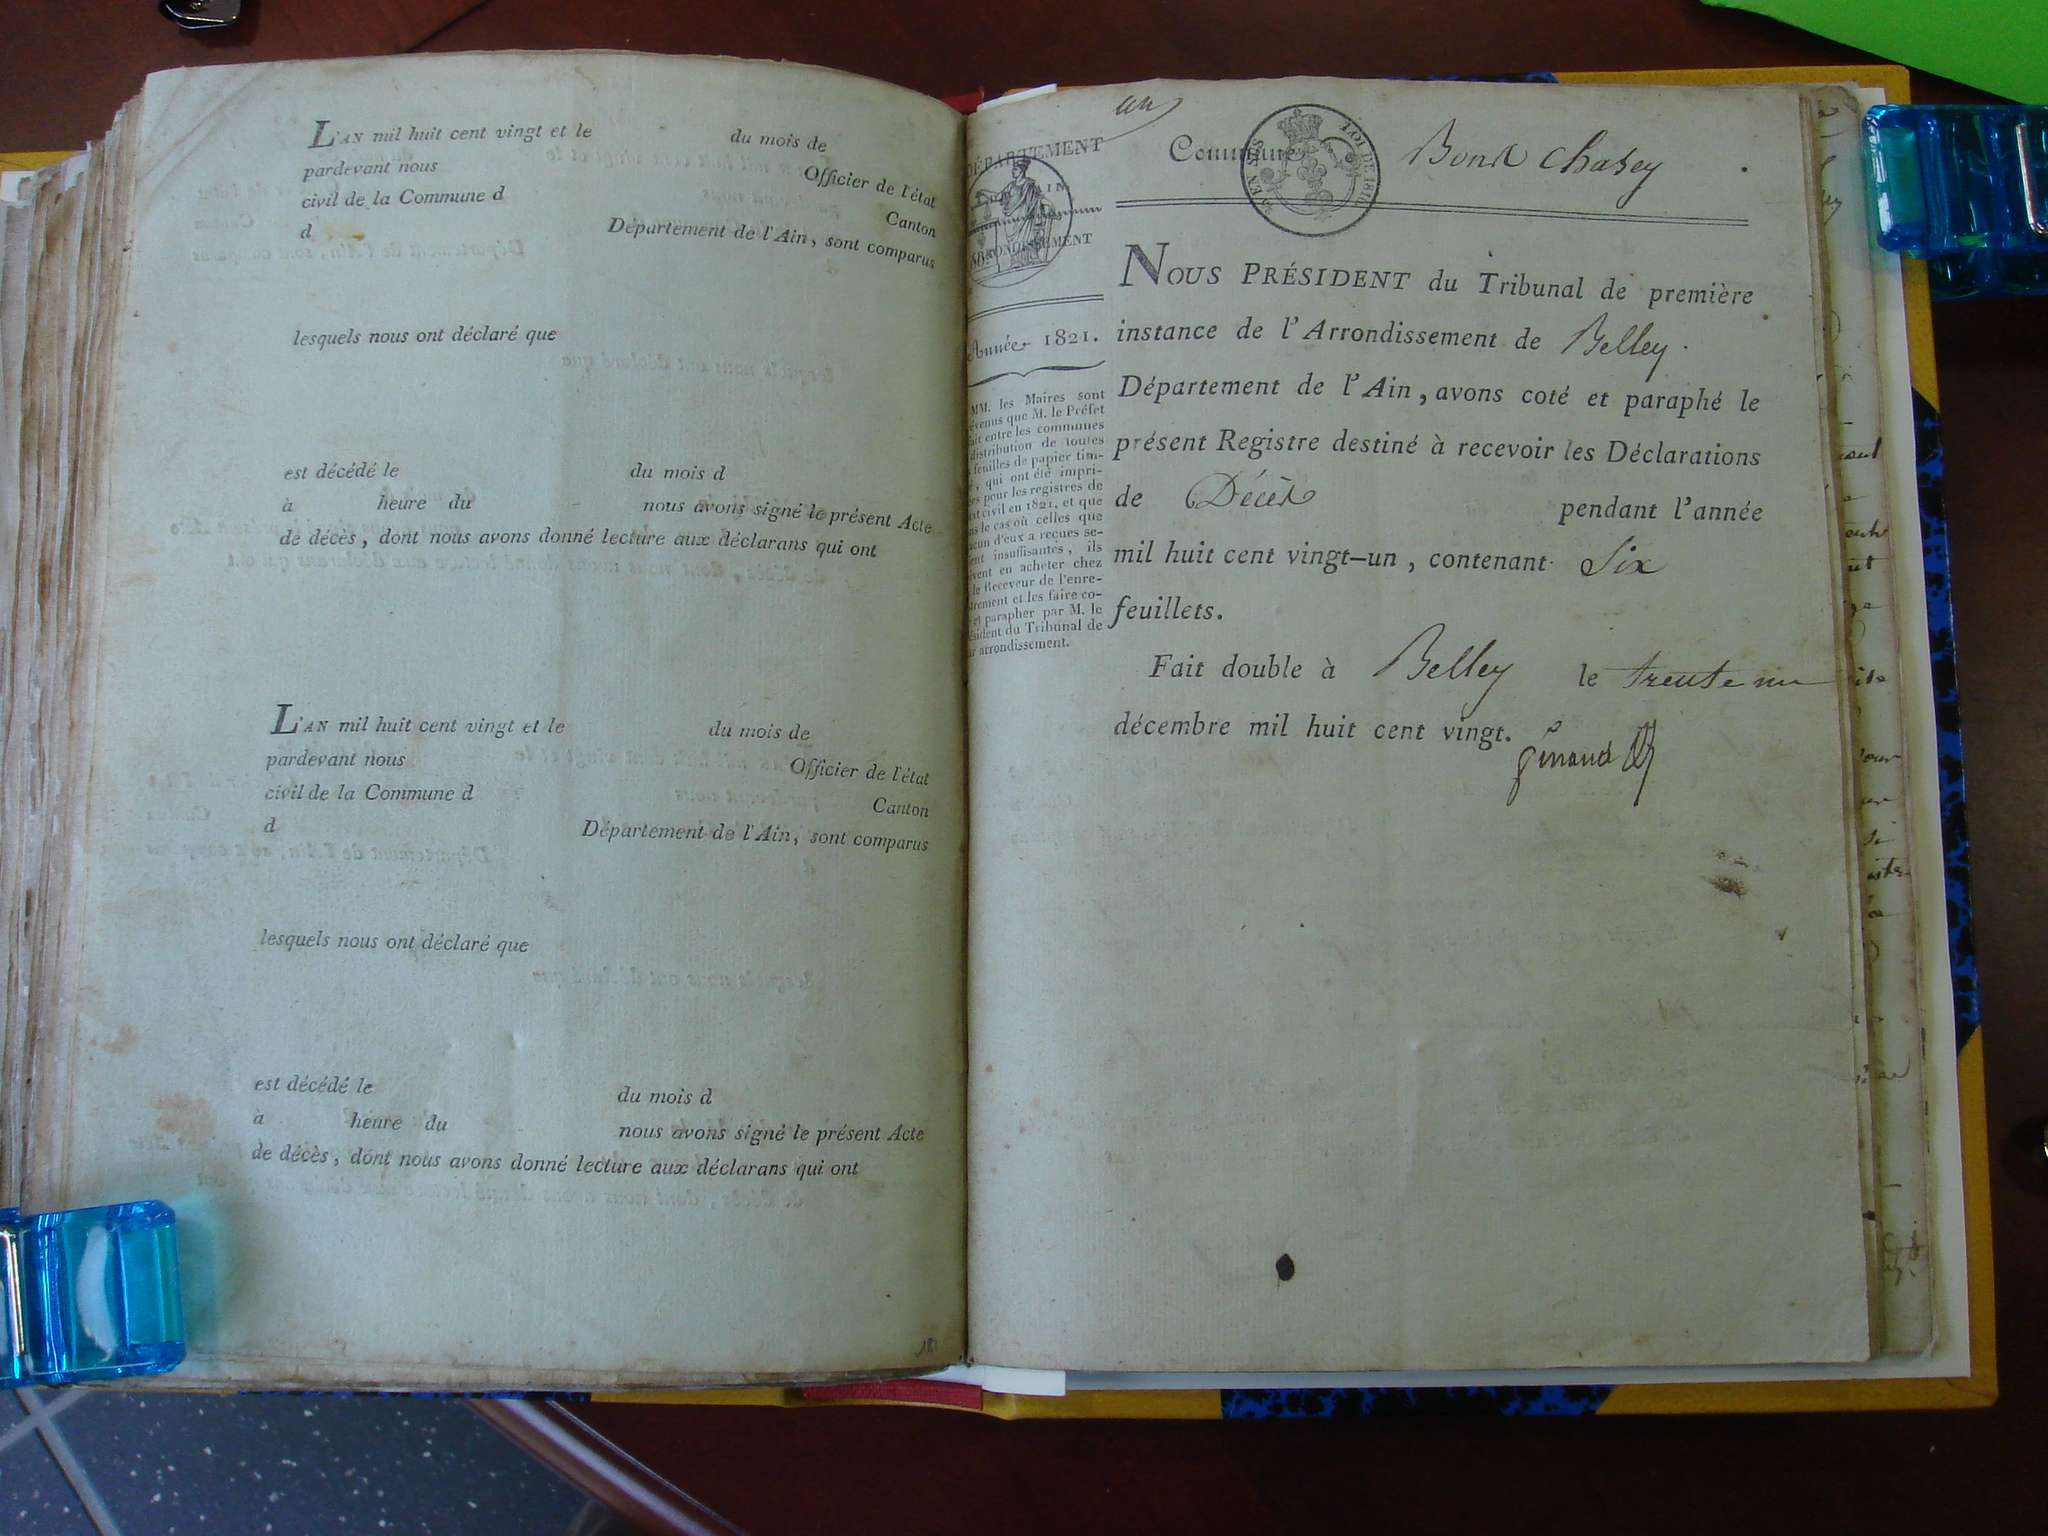 L'AN mil huit cent vingt et le du mois de
pardevant nous Officier de l'état
civil de la Commune d Canton
d Département de l'Ain, sont comparus
lesquels nous ont déclaré que
est décédé le du mois d
à heure du nous avons signé le présent Acte
de décès, dont nous avons donné lecture aux déclarans qui ont
L'AN mil huit cent vingt et le du mois de
pardevant nous Officier de l'état
civil de la Commune d Canton
d Département de l'Ain, sont comparus
lesquels nous ont déclaré que
est décédé le du mois d
à heure du nous avons signé le présent Acte
de décès, dont nous avons donné lecture aux déclarans qui ont
DÉPARTEMENT
AIN
ARRONDISSEMENT
Année 1821.
MM. les Maires sont
venus que M. le Préfet
ait entre les communes
distribution de toutes
feuilles de papier tim-
, qui ont été impri-
es pour les registres de
at civil en 1821, et que
ns le cas où celles que
acun d'eux a reçues se-
ent insuffisantes, ils
ivent en acheter chez
le Receveur de l'enre-
trement et les faire co-
et parapher par M. le
ésident du Tribunal de
arrondissement.
Commune Bons Chasey
LOI DE 1816
NOUS PRÉSIDENT du Tribunal de première
instance de l'Arrondissement de Belley.
Département de l'Ain, avons coté et paraphé le
présent Registre destiné à recevoir les Déclarations
de Décès pendant l'année
mil huit cent vingt-un, contenant Six
feuillets.
Fait double à Belley le trente un
décembre mil huit cent vingt.